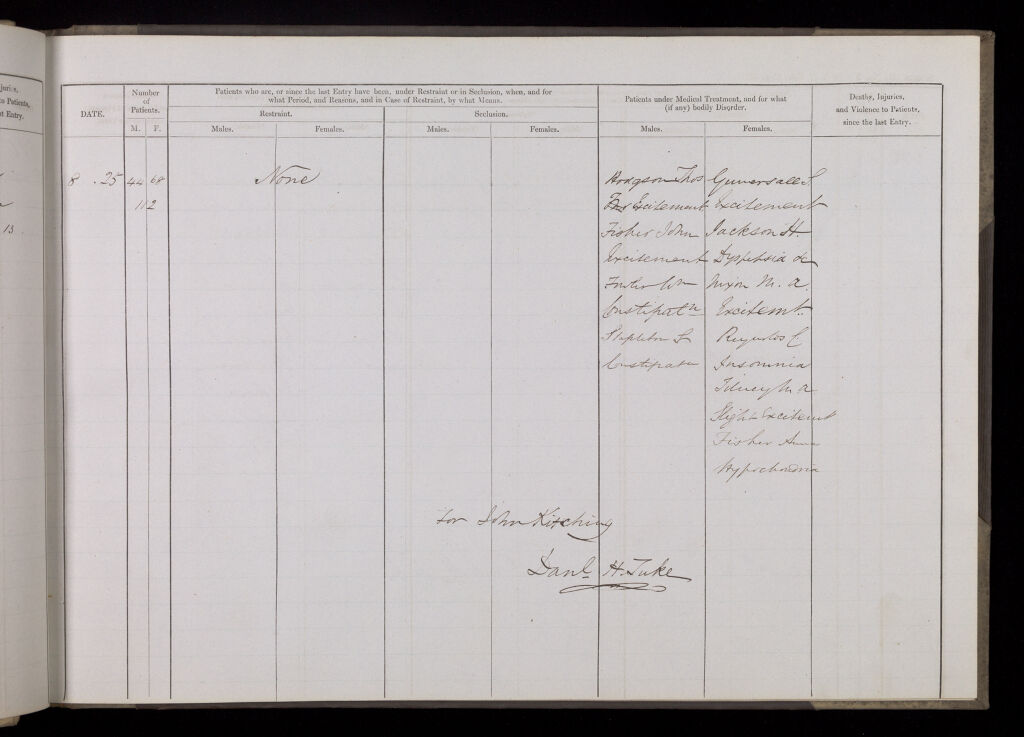 juries,
to Patients,
t Entry.
13
DATE.
Number
of
Patients.
M. F.
Patients who are, or since the last Entry have been, under Restraint or in Seclusion, when, and for
what Period, and Reasons, and in Case of Restraint, by what Means.
Restraint.
Seclusion.
Males.
Females.
Males.
Females.
Patients under Medical Treatment, and for what
(if any) bodily Disorder.
Males.
Females.
Deaths, Injuries,
and Violence to Patients,
since the last Entry.
8 . 25 44 68
112
None
Hodgson Thos
Excitement
Fisher John
Excitement
Wm
Constipatn
Stapleton
Constipatn
Excitement
Jackson H.
Dyspepsia &c
Nixon M. a.
Excitemt.
Reynolds E
Insomnia
M a
Slight Excitemt
Fisher Anna
Hypochondria
for John Kitching
Danl H. Tuke